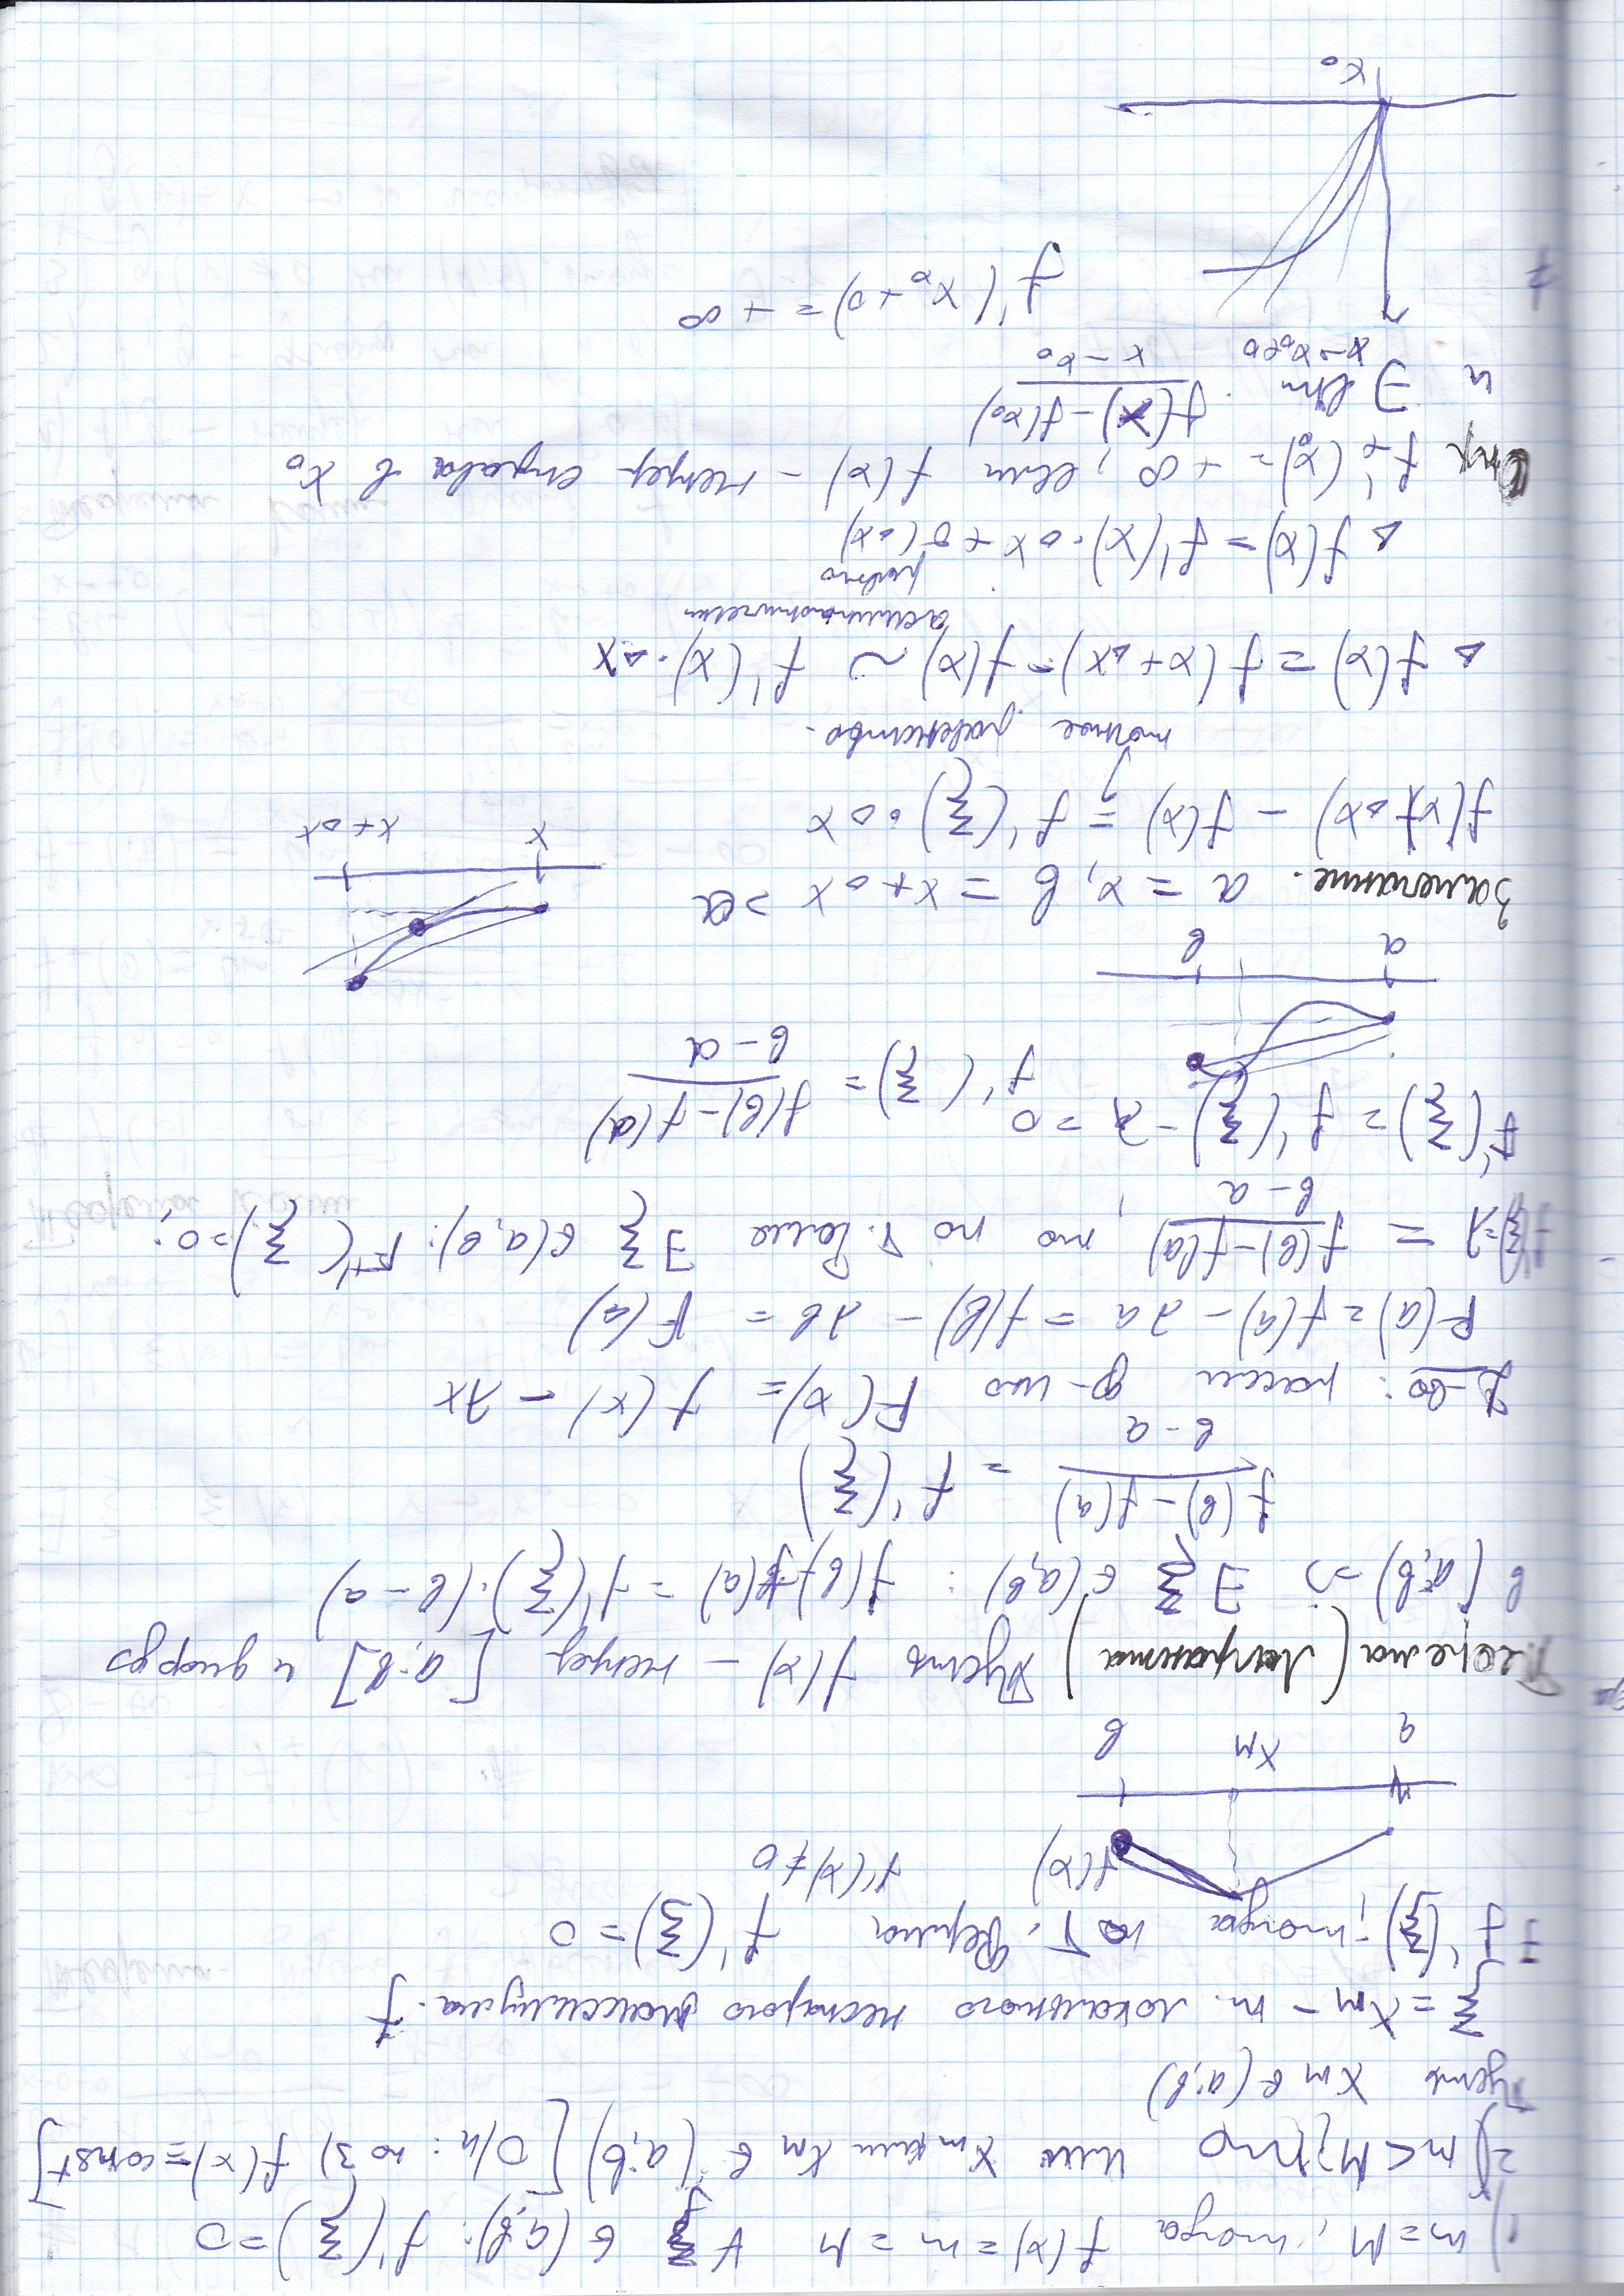 1) m = M, тогда f(x) = m = M ∀ ξ ∈ (a,b): f'(ξ) = 0
2) m < M; то или x_m или x_M в (a;b) [О/п: по 3) f(x) = const]
Пусть x_M ∈ (a;b)
ξ = x_M – т. локального нестрого максимума.
∃ f'(ξ); тогда по т. Ферма f'(ξ) = 0
f(x) f'(x) ≠ 0
a x_M b
Теорема (Лагранжа) Пусть f(x) – непрер [a;b] и дифф
в (a;b) => ∃ ξ ∈ (a,b): f(b) - f(a) = f'(ξ)·(b – a)
(f(b) – f(a))/(b – a) = f'(ξ)
Д-во: рассм ф-цию F(x) = f(x) – λx
F(a) = f(a) – λa = f(b) – λb = F(a)
λ = (f(b) – f(a))/(b – a), то по т. Ролля ∃ ξ ∈ (a,b): F'(ξ) = 0;
F'(ξ) = f'(ξ) – λ = 0
f'(ξ) = (f(b) – f(a))/(b – a)
a b
Замечание. a = x, b = x + Δx > a
x x + Δx
f(x + Δx) – f(x) = f'(ξ)·Δx
точное равенство.
Δf(x) = f(x + Δx) – f(x) ~ f'(x)·Δx
асимптотически
равно
Δf(x) = f'(x)·Δx + o(Δx)
Опр f'₊(x₀) = +∞, если f(x) – непрер справа в x₀
и ∃ lim x→x₀+0 (f(x) – f(x₀))/(x – x₀)
f'(x₀ + 0) = +∞
x₀